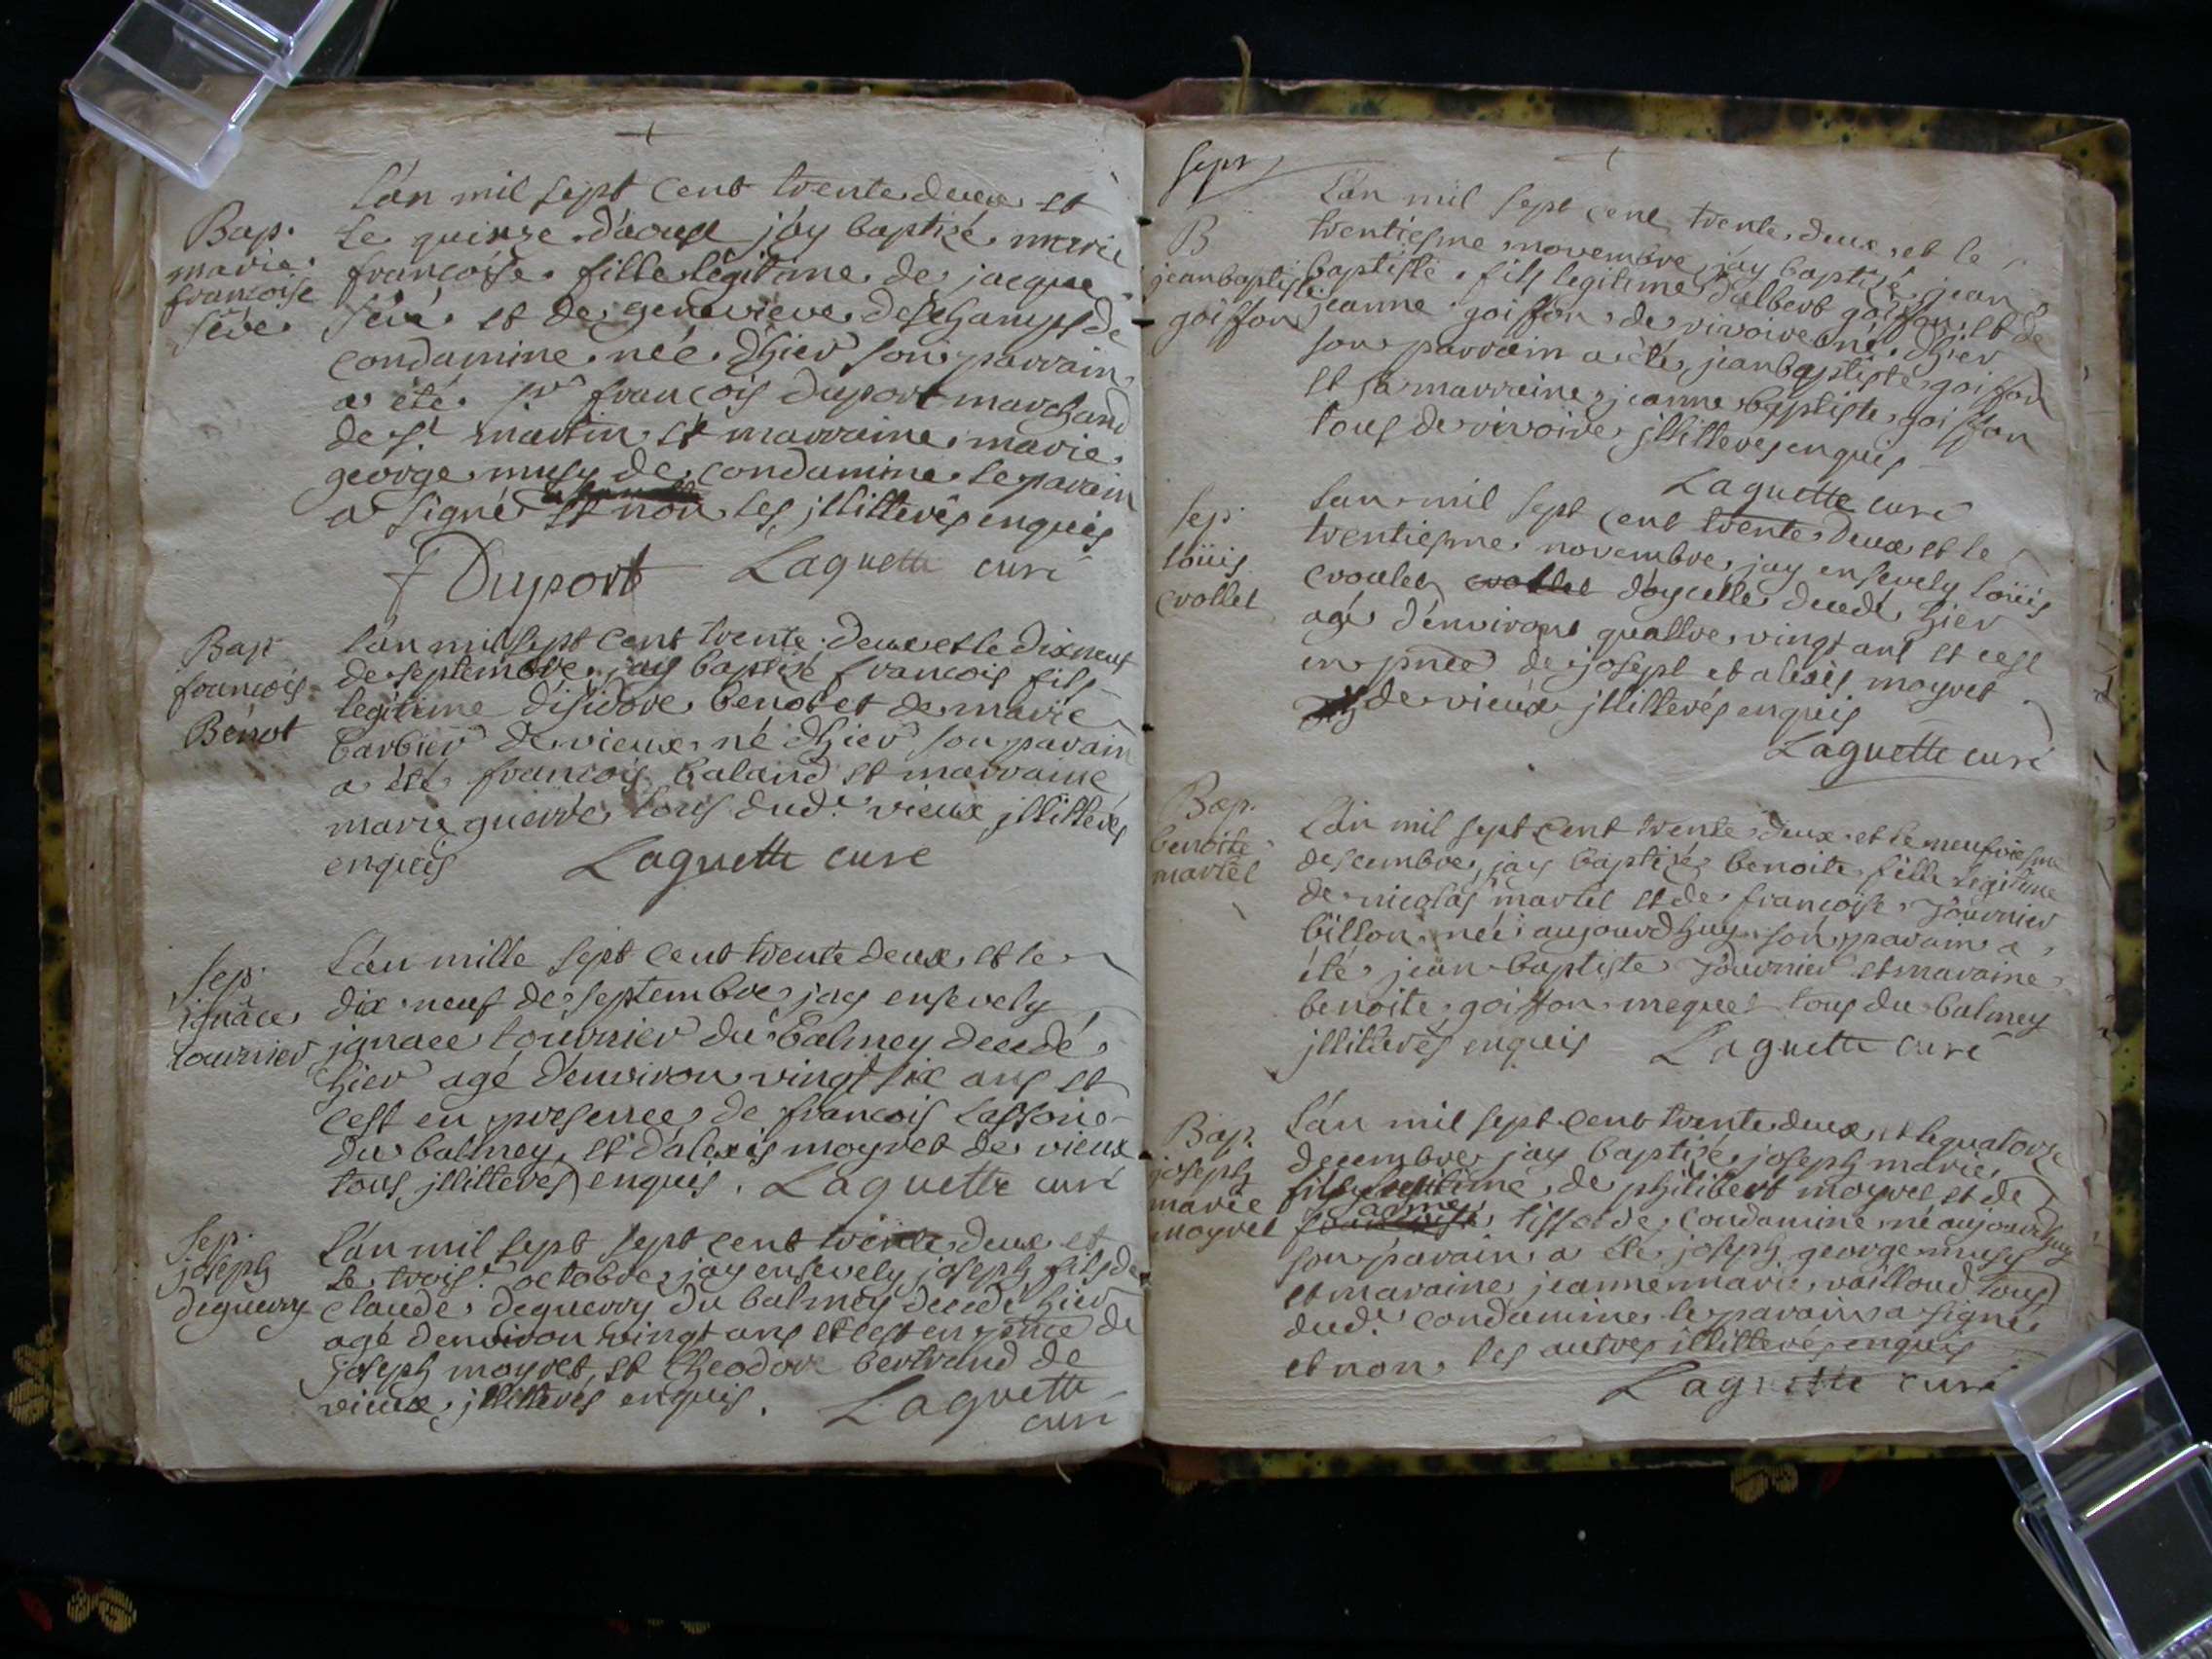 L'an mil sept cent trente deux et
Bap.
marie
francoise
séve
le quinze d'aoust j'ay baptizé marie
francoise fille legitime de jacque
séve et de genevieve deschamps de
condamine née d'hier son parrain
a été sr francois duport marchand
de st martin et marraine marie
george musy de condamine le parain
a signé et non les jllitterés enquis
f Duport Laguette curé
Bap
francois
Benot
L'an mil sept cent trente deux et le dixneuf
de septembre jay baptizé francois fils
legitime d'isidore benot et de marie
barbier de vieux né d'hier son parain
a été francois baland et marraine
marie guerre tous dud.t vieux jllitterés
enquis Laguette curé
Sep.
ignace
tournier
L'an mille sept cent trente deux et le
dix neuf de septembre jay ensevely
jgnace tournier du balmey decedé
hier agé d'environ vingt six ans et
cest en presence de francois
du balmey et d'alexis moyret de vieux
tous jllitterés enquis. Laguette curé
Sep.
joseph
deguerry
L'an mil sept sept cent trente deux et
le trois.e octobre jay ensevely joseph fils de
claude deguerry du balmey decedé hier
agé denviron vingt ans et cest en pnce de
joseph moyret et theodore bertrand de
vieux jllitterés enquis. Laguette
curé
sept
L'an mil sept cent trente deux et le
B
jean baptiste
goiffon
trentiesme novembre jay baptizé jean
baptiste fils legitime d'albert goiffon et de
jeanne goiffon de rivoire né d'hier
son parrain a été jean baptiste goiffon
et sa marraine jeanne baptiste goiffon
tous de rivoire jllitteres enquis
Laguette curé
Sep.
loüis
crollet
L'an mil sept cent trente deux et le
trentiesme novembre jay ensevely loüis
croulet crollet d'oyselle decedé hier
agé d'environt quattre vingt ans et cest
en pnce de josept et alexis moyret
de vieux jllitterés enquis
Laguette curé
Bap.
benoite
martel
L'an mil sept cent trente deux et le neufviesme
descembre jay baptizé benoite fille legitime
de nicolas martel et de francoise journier
billon née aujourdhuy son parain a
été jean baptiste journier et maraine
benoite goiffon mequet tous du balmey
jllitterés enquis Laguette curé
Bap.
joseph
marie
moyret
L'an mil sept cent trente deux et le quatorze
decembre jay baptizé joseph marie
fils legitime de philibert moyret et de
tissot de condamine né aujourdhuy
son parain a été joseph george musy
et maraine jeanne marie vailloud tous
dud.t condamine le parain a signé
et non les autres illitterés enquis
Laguette curé